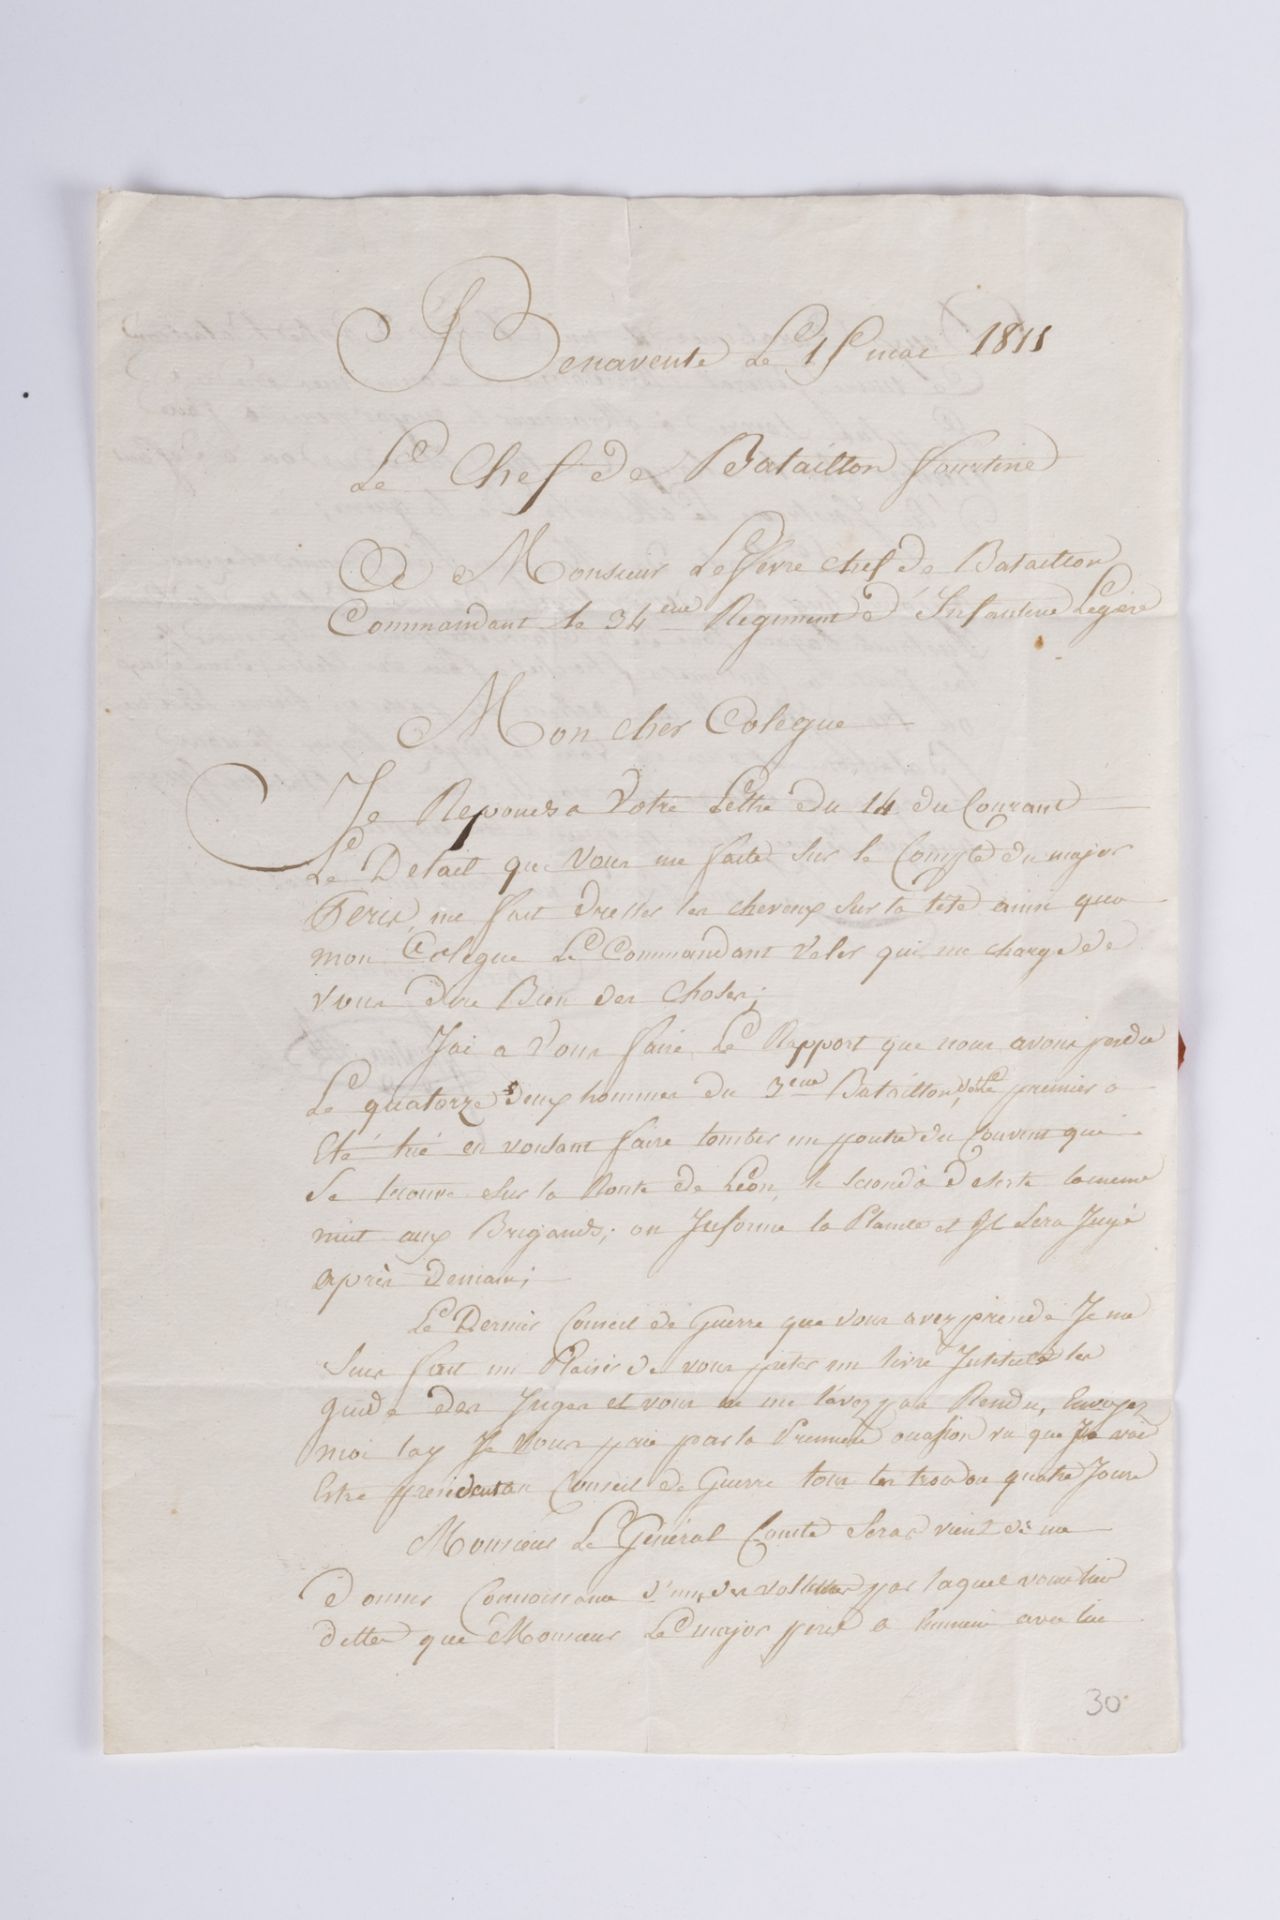 Benavente Le 15 mai 1811
Le Chef de Bataillon fourtine
A Monsieur Lefevre chef de Bataillon
Commandant le 34eme Regiment d'Infanterie Legère
Mon cher Colegue
Je Reponds a Votre Lettre du 14 du Courant
Le Detail que vous me faite sur le Compte du major
me fait dresser les cheveux sur la tete ainsi que
mon Colegue Le Commandant Valer qui me charge de
vous dire Bien des choses;
J'ai a Vous faire Le Rapport que nous avons perdu
Le quatorze deux hommes du 3eme Bataillon, le premier a
Eté tué en voulant faire tomber un poutre du Couvent qui
se trouve sur la Route de Léon, le second à deserté la meme
nuit aux Brigands; on Informe la Plainte et Il sera Jugé
après demain;
Le Dernier Conseil de Guerre que vous avez preside Je me
suis fait un Plaisir de vous preter un livre Intitulé les
guide des Juges et vous ne me l'avez pas Rendu, Envoyez
moi lay Je vous prie par la Premiere ocassion vu que Je vai
Estre president au Conseil de Guerre tous les trois ou quatre Jours
Monsieur Le Général Comte Seras vient de me
donner Connoissance d'une des par laquel vous lui
dittes que Monsieur Le major a avec lui
30